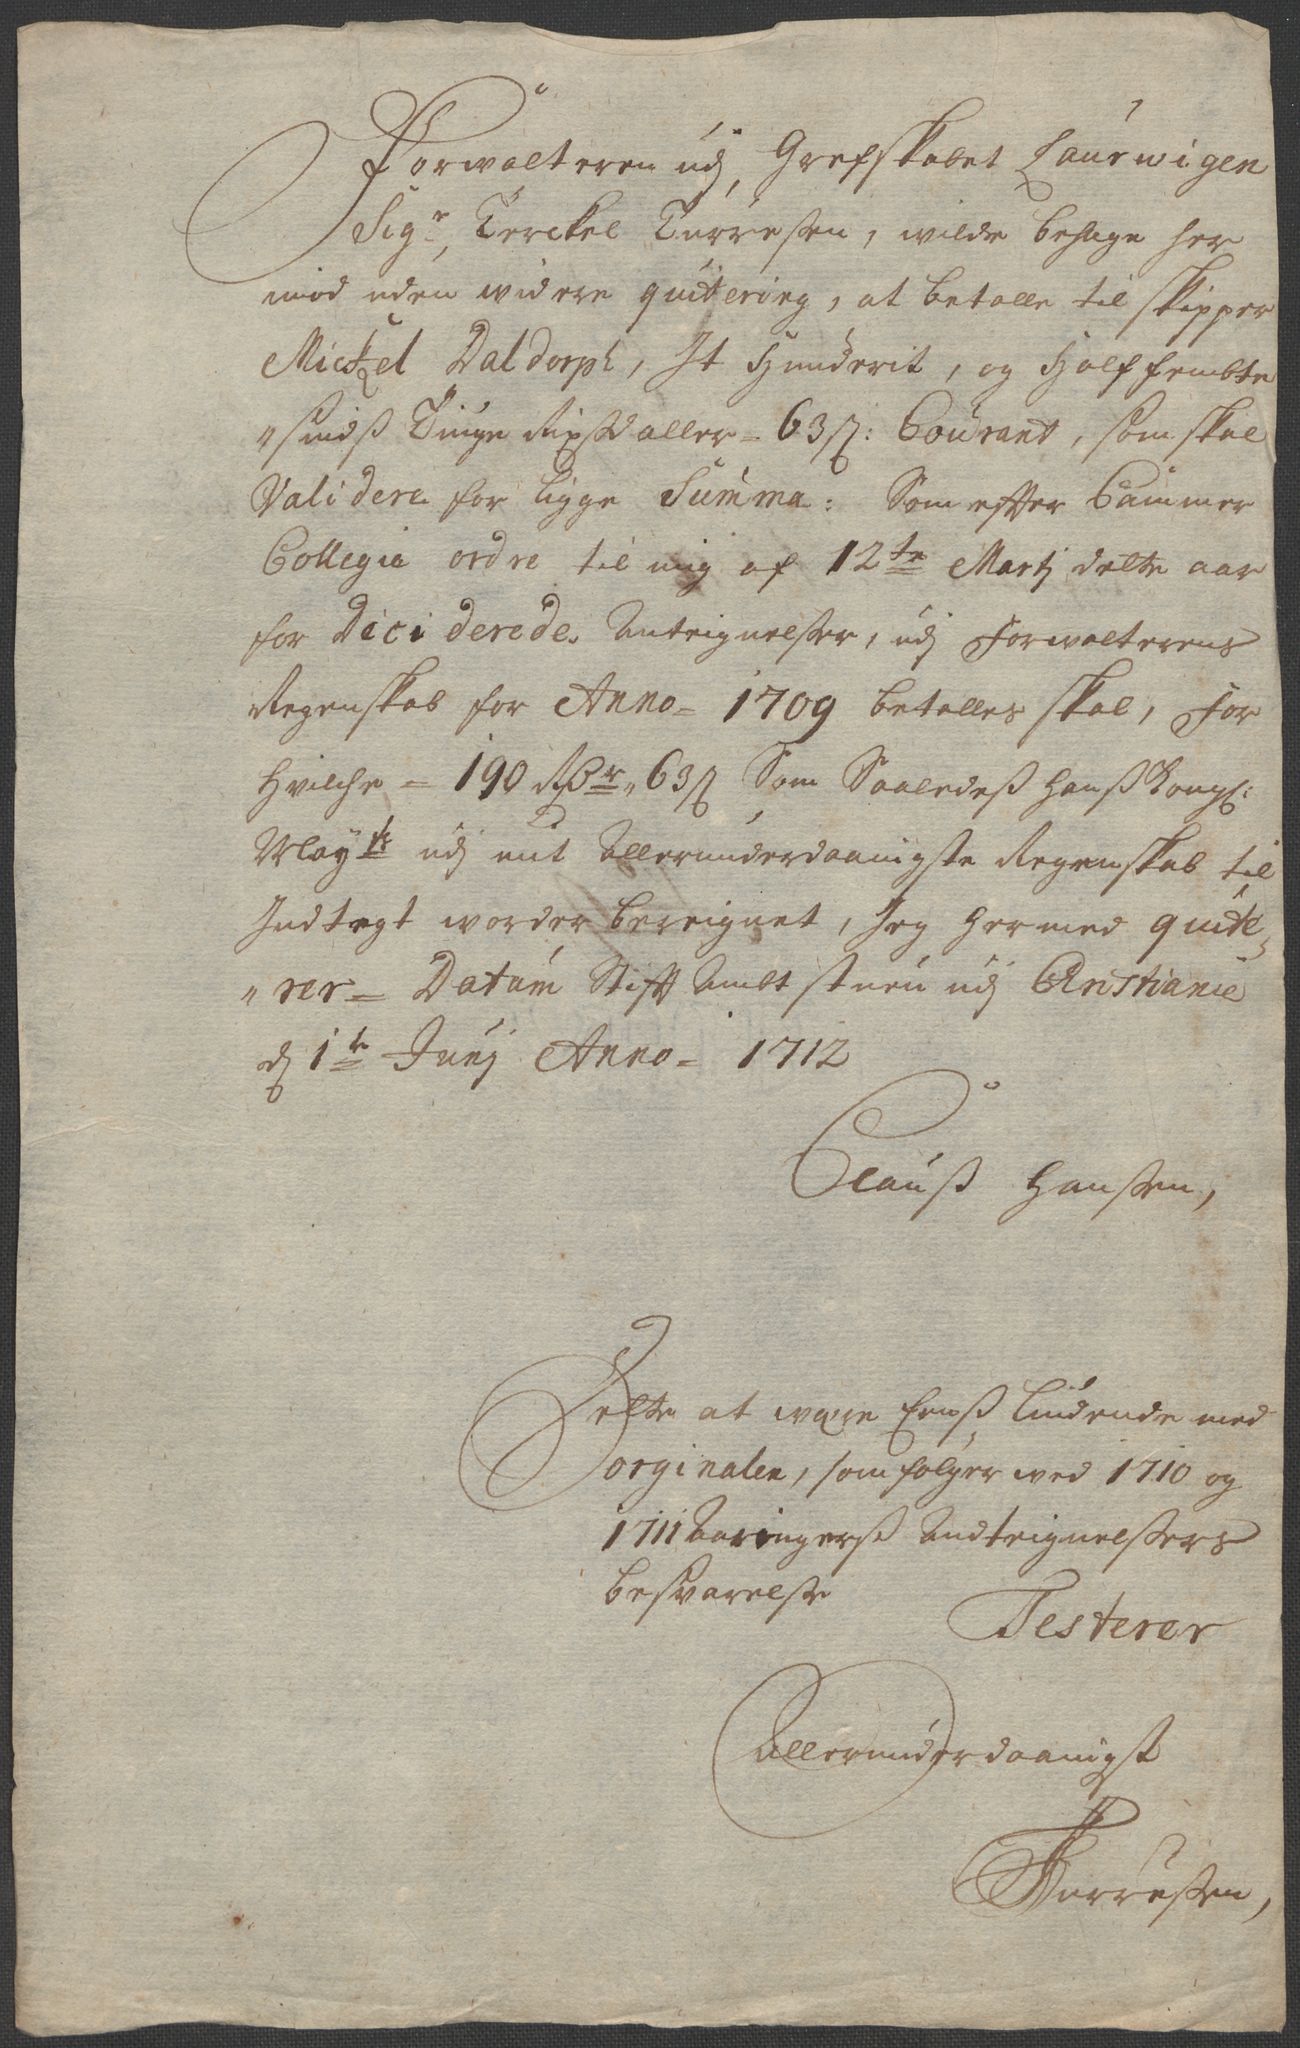 Forwalteren udj, Grefskabet Laurwigen
Sigr, Terckel Turresen, wilde behage her
mod uden widere quitering, at betalle til skipper
Mickel Daldorph, It Hunderit, og Halffembte
"sinds Tiuge Rixdaller = 63 s: Courant, som skal
Validere for ligge Summa: Som effter Cammer
Collegie ordre til mig af 12te Martj dette aar
for Dici derede Anteignelser, udj Forwalterens
Regenskab for Anno = 1709 betalles skal, For
Hvilche = 190 Rdr " 63 s Som Saaledeß Hanß Kongl:
Mayts udj mit Allerunderdaanigste Regenskab til
Indtegt worder bereignet, Jeg Hermed quite,,
"rer = Datum Stifft Ambt stuen udj Christianie
d 1te Junj Anno = 1712
Clauß Hanßen,
Dette at were Eenß Liudende med
orginalen, som følger wed 1710 og
1711 Aaringerß Andteignelßers
besvarelse
Testerer
Allerunderdaanigst
TTurresen,